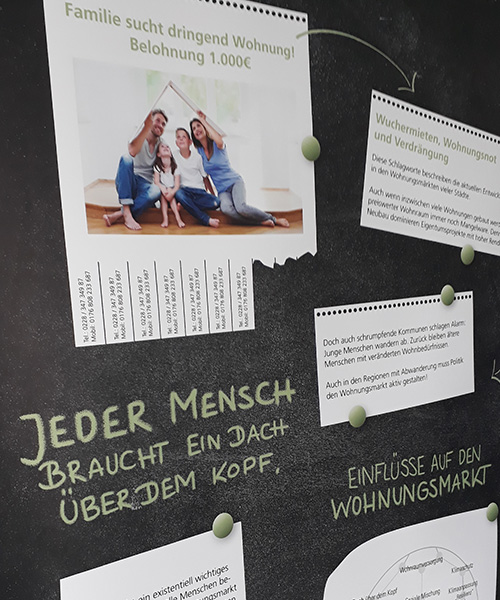 Familie sucht dringend Wohnung!
Belohnung 1.000€
Tel.: 0228 / 347 349 87
Mobil: 0176 808 233 687
Tel.: 0228 / 347 349 87
Mobil: 0176 808 233 687
Tel.: 0228 / 347 349 87
Mobil: 0176 808 233 687
Tel.: 0228 / 347 349 87
Mobil: 0176 808 233 687
Tel.: 0228 / 347 349 87
Mobil: 0176 808 233 687
Tel.: 0228 / 347 349 87
Mobil: 0176 808 233 687
Tel.: 0228 / 347 349 87
Mobil: 0176 808 233 687
Wuchermieten, Wohnungsnot
und Verdrängung
Diese Schlagworte beschreiben die aktuellen
in den Wohnungsmärkten vieler Städte.
Auch wenn inzwischen viele Wohnungen gebaut
preiswerter Wohnraum immer noch Mangelware.
Neubau dominieren Eigentumsprojekte mit hoher
Doch auch schrumpfende Kommunen schlagen Alarm:
Junge Menschen wandern ab. Zurück bleiben ältere
Menschen mit veränderten Wohnbedürfnissen.
Auch in den Regionen mit Abwanderung muss Politik
den Wohnungsmarkt aktiv gestalten!
JEDER MENSCH
BRAUCHT EIN DACH
ÜBER DEM KOPF.
EINFLÜSSE AUF DEN
WOHNUNGSMARKT
ein existentiell wichtiges
lle Menschen be-
ungsmarkt
Wohnraumversorgung
Klimaschutz
Dach über dem Kopf
Soziale Mischung
Klimaanpassung